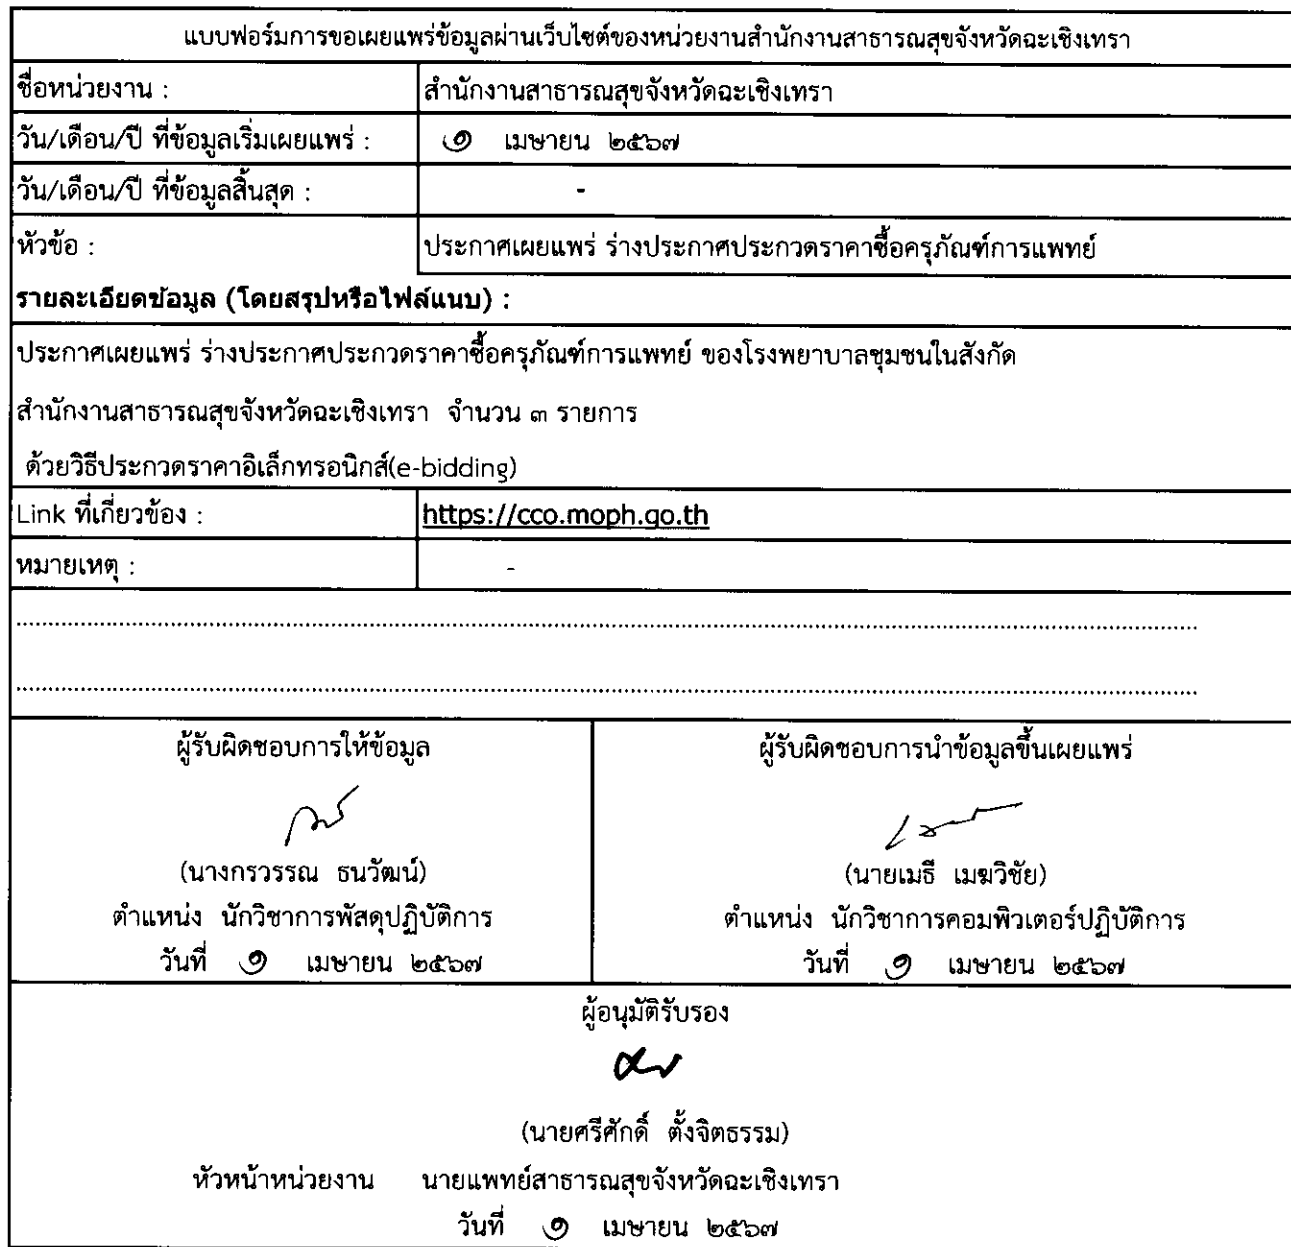 แบบฟอร์มการขอเผยแพร่ข้อมูลผ่านเว็บไซต์ของหน่วยงานสำนักงานสาธารณสุขจังหวัดฉะเชิงเทรา
ชื่อหน่วยงาน : สำนักงานสาธารณสุขจังหวัดฉะเชิงเทรา
วัน/เดือน/ปี ที่ข้อมูลเริ่มเผยแพร่ : ๑ เมษายน ๒๕๖๗
วัน/เดือน/ปี ที่ข้อมูลสิ้นสุด : -
หัวข้อ : ประกาศเผยแพร่ ร่างประกาศประกวดราคาซื้อครุภัณฑ์การแพทย์
รายละเอียดข้อมูล (โดยสรุปหรือไฟล์แนบ) :
ประกาศเผยแพร่ ร่างประกาศประกวดราคาซื้อครุภัณฑ์การแพทย์ ของโรงพยาบาลชุมชนในสังกัด
สำนักงานสาธารณสุขจังหวัดฉะเชิงเทรา จำนวน ๓ รายการ
ด้วยวิธีประกวดราคาอิเล็กทรอนิกส์(e-bidding)
Link ที่เกี่ยวข้อง : https://cco.moph.go.th
หมายเหตุ : -
ผู้รับผิดชอบการให้ข้อมูล ผู้รับผิดชอบการนำข้อมูลขึ้นเผยแพร่
(นางกรวรรณ ธนวัฒน์) (นายเมธี เมฆวิชัย)
ตำแหน่ง นักวิชาการพัสดุปฏิบัติการ ตำแหน่ง นักวิชาการคอมพิวเตอร์ปฏิบัติการ
วันที่ ๑ เมษายน ๒๕๖๗ วันที่ ๑ เมษายน ๒๕๖๗
ผู้อนุมัติรับรอง
(นายศรีศักดิ์ ตั้งจิตธรรม)
หัวหน้าหน่วยงาน นายแพทย์สาธารณสุขจังหวัดฉะเชิงเทรา
วันที่ ๑ เมษายน ๒๕๖๗